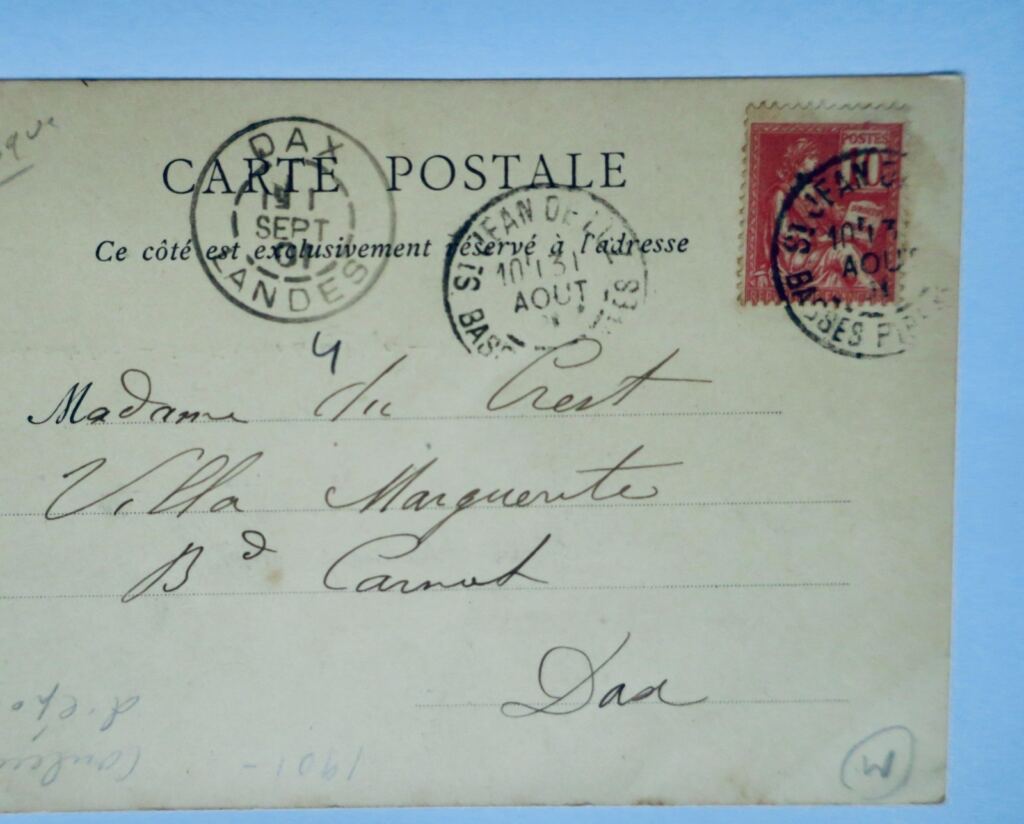 CARTE POSTALE
Ce côté est exclusivement réservé à l'adresse
DAX
1 SEPT
01
LANDES
ST JEAN DE LUZ
31
AOUT
BASSES PYRENEES
POSTES
10
ST JEAN DE
AOUT
BASSES PYRENEES
4
Madame du Crest
Villa Marguerite
Bd Carnot
Dax
1901 -
Couleur
d'épo
W